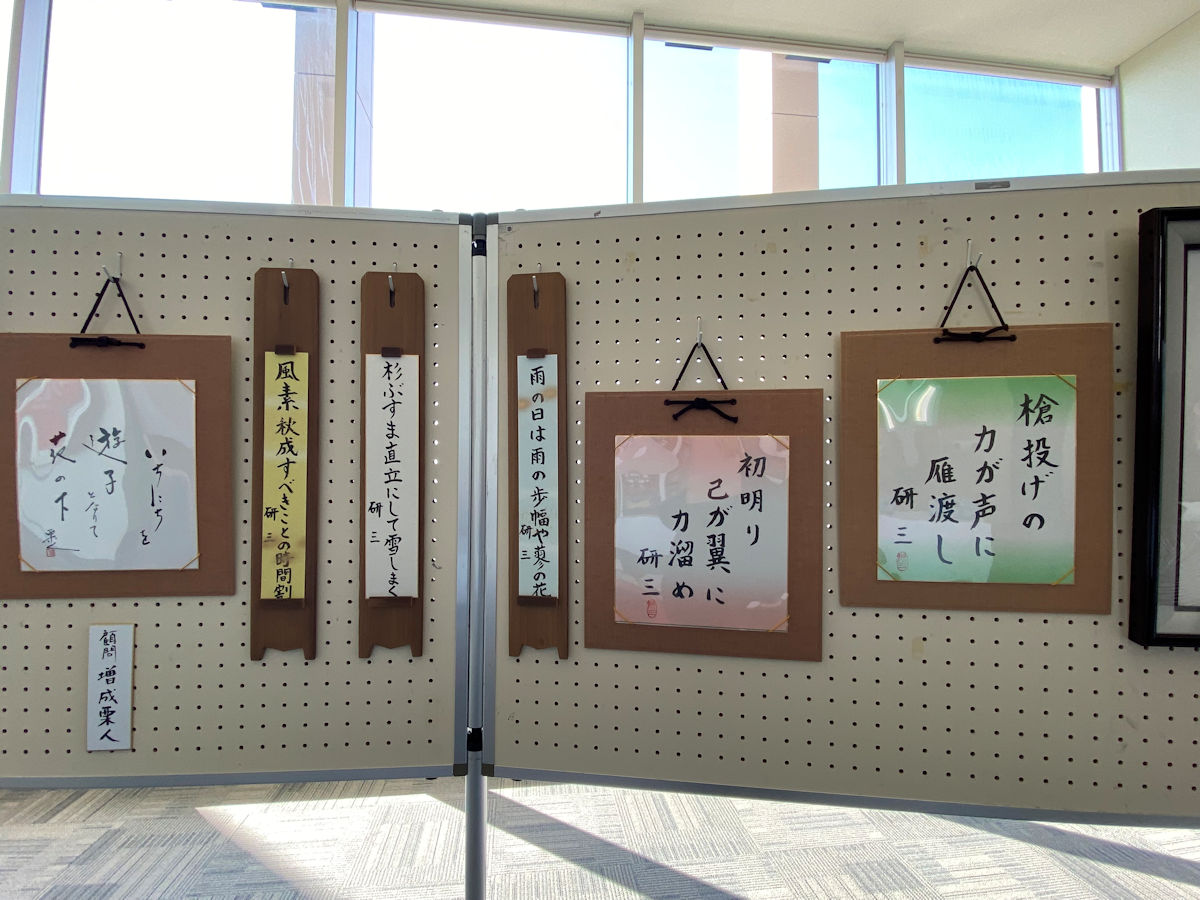 槍投げの
力が声に
雁渡し
研三
初明り
己が翼に
力溜め
研三
雨の日は雨の歩幅や蓼の花
研三
杉ぶすま直立にして雪しまく
研三
風素秋成すべきことの時間割
研三
いちにちを
遊子となりて
花の下
栗人
顧問 増成栗人